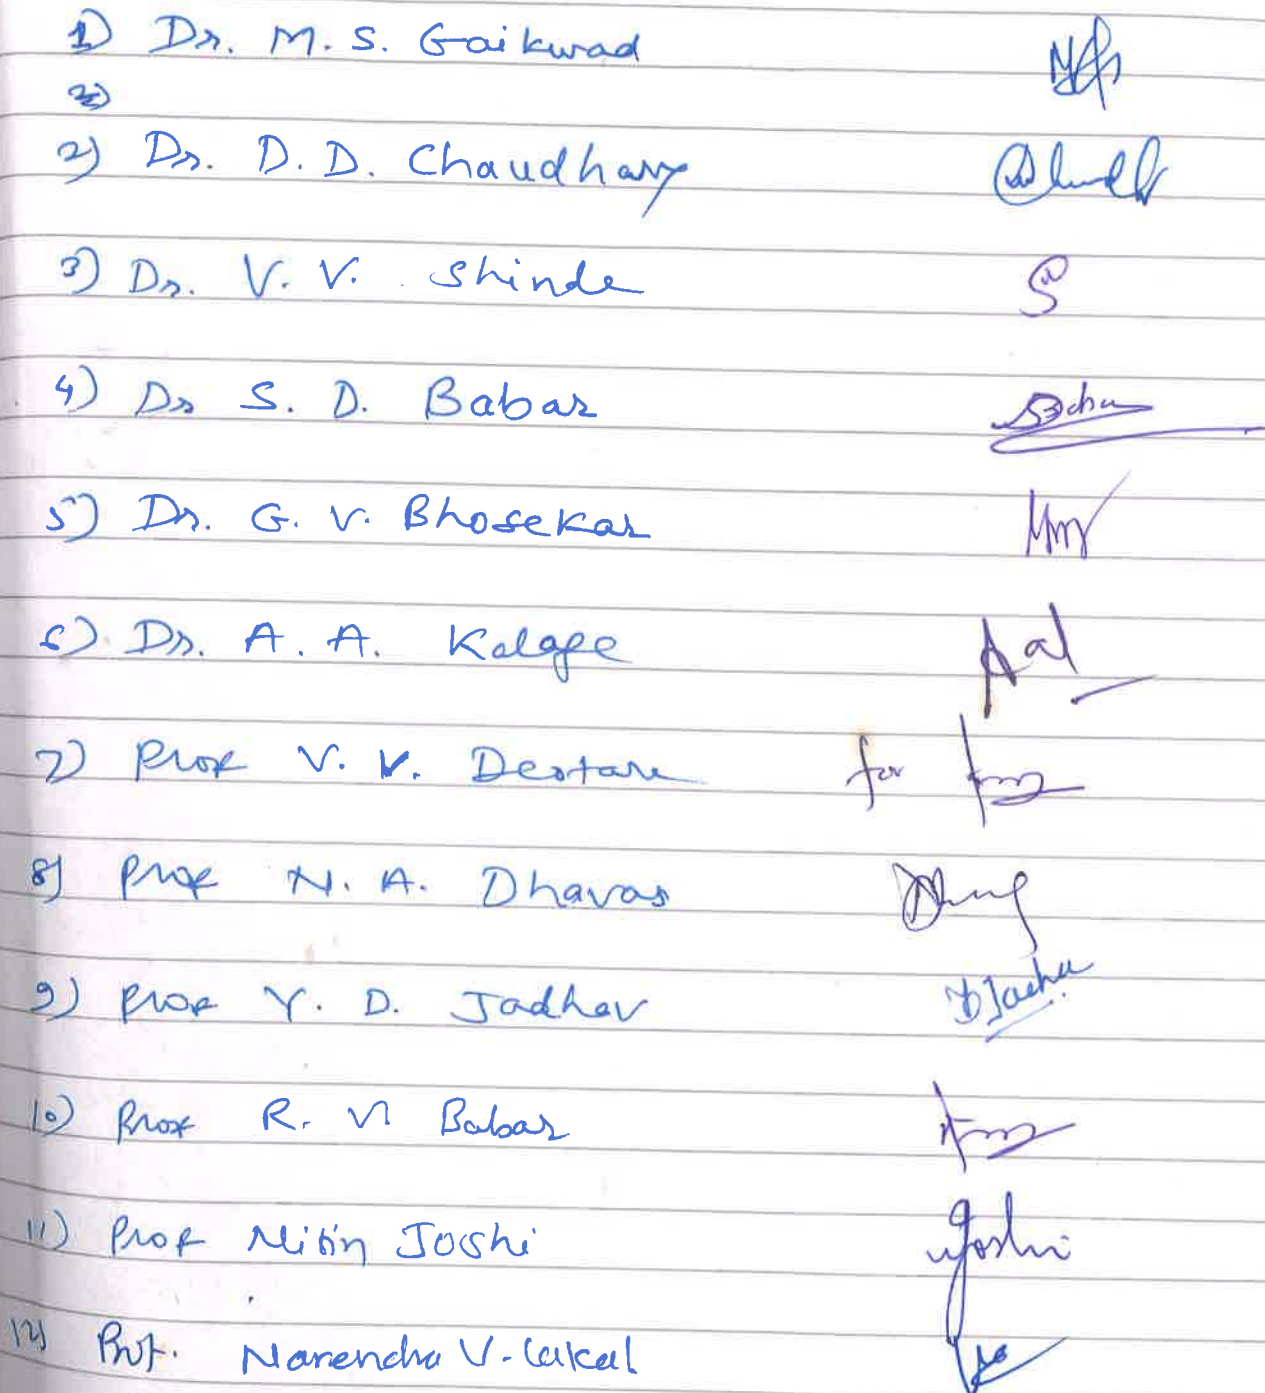 1) Dr. M. S. Gaikwad
2)
2) Dr. D. D. Chaudhary
3) Dr. V. V. Shinde
4) Dr S. D. Babar
5) Dr. G. V. Bhosekar
6) Dr. A. A. Kalage
7) Prof V. V. Deotare for
8) Prof N. A. Dhavas
9) Prof Y. D. Jadhav DJadha
10) Prof R. V Babar
11) Prof Nitin Joshi Joshi
12) Prof. Narendra V.